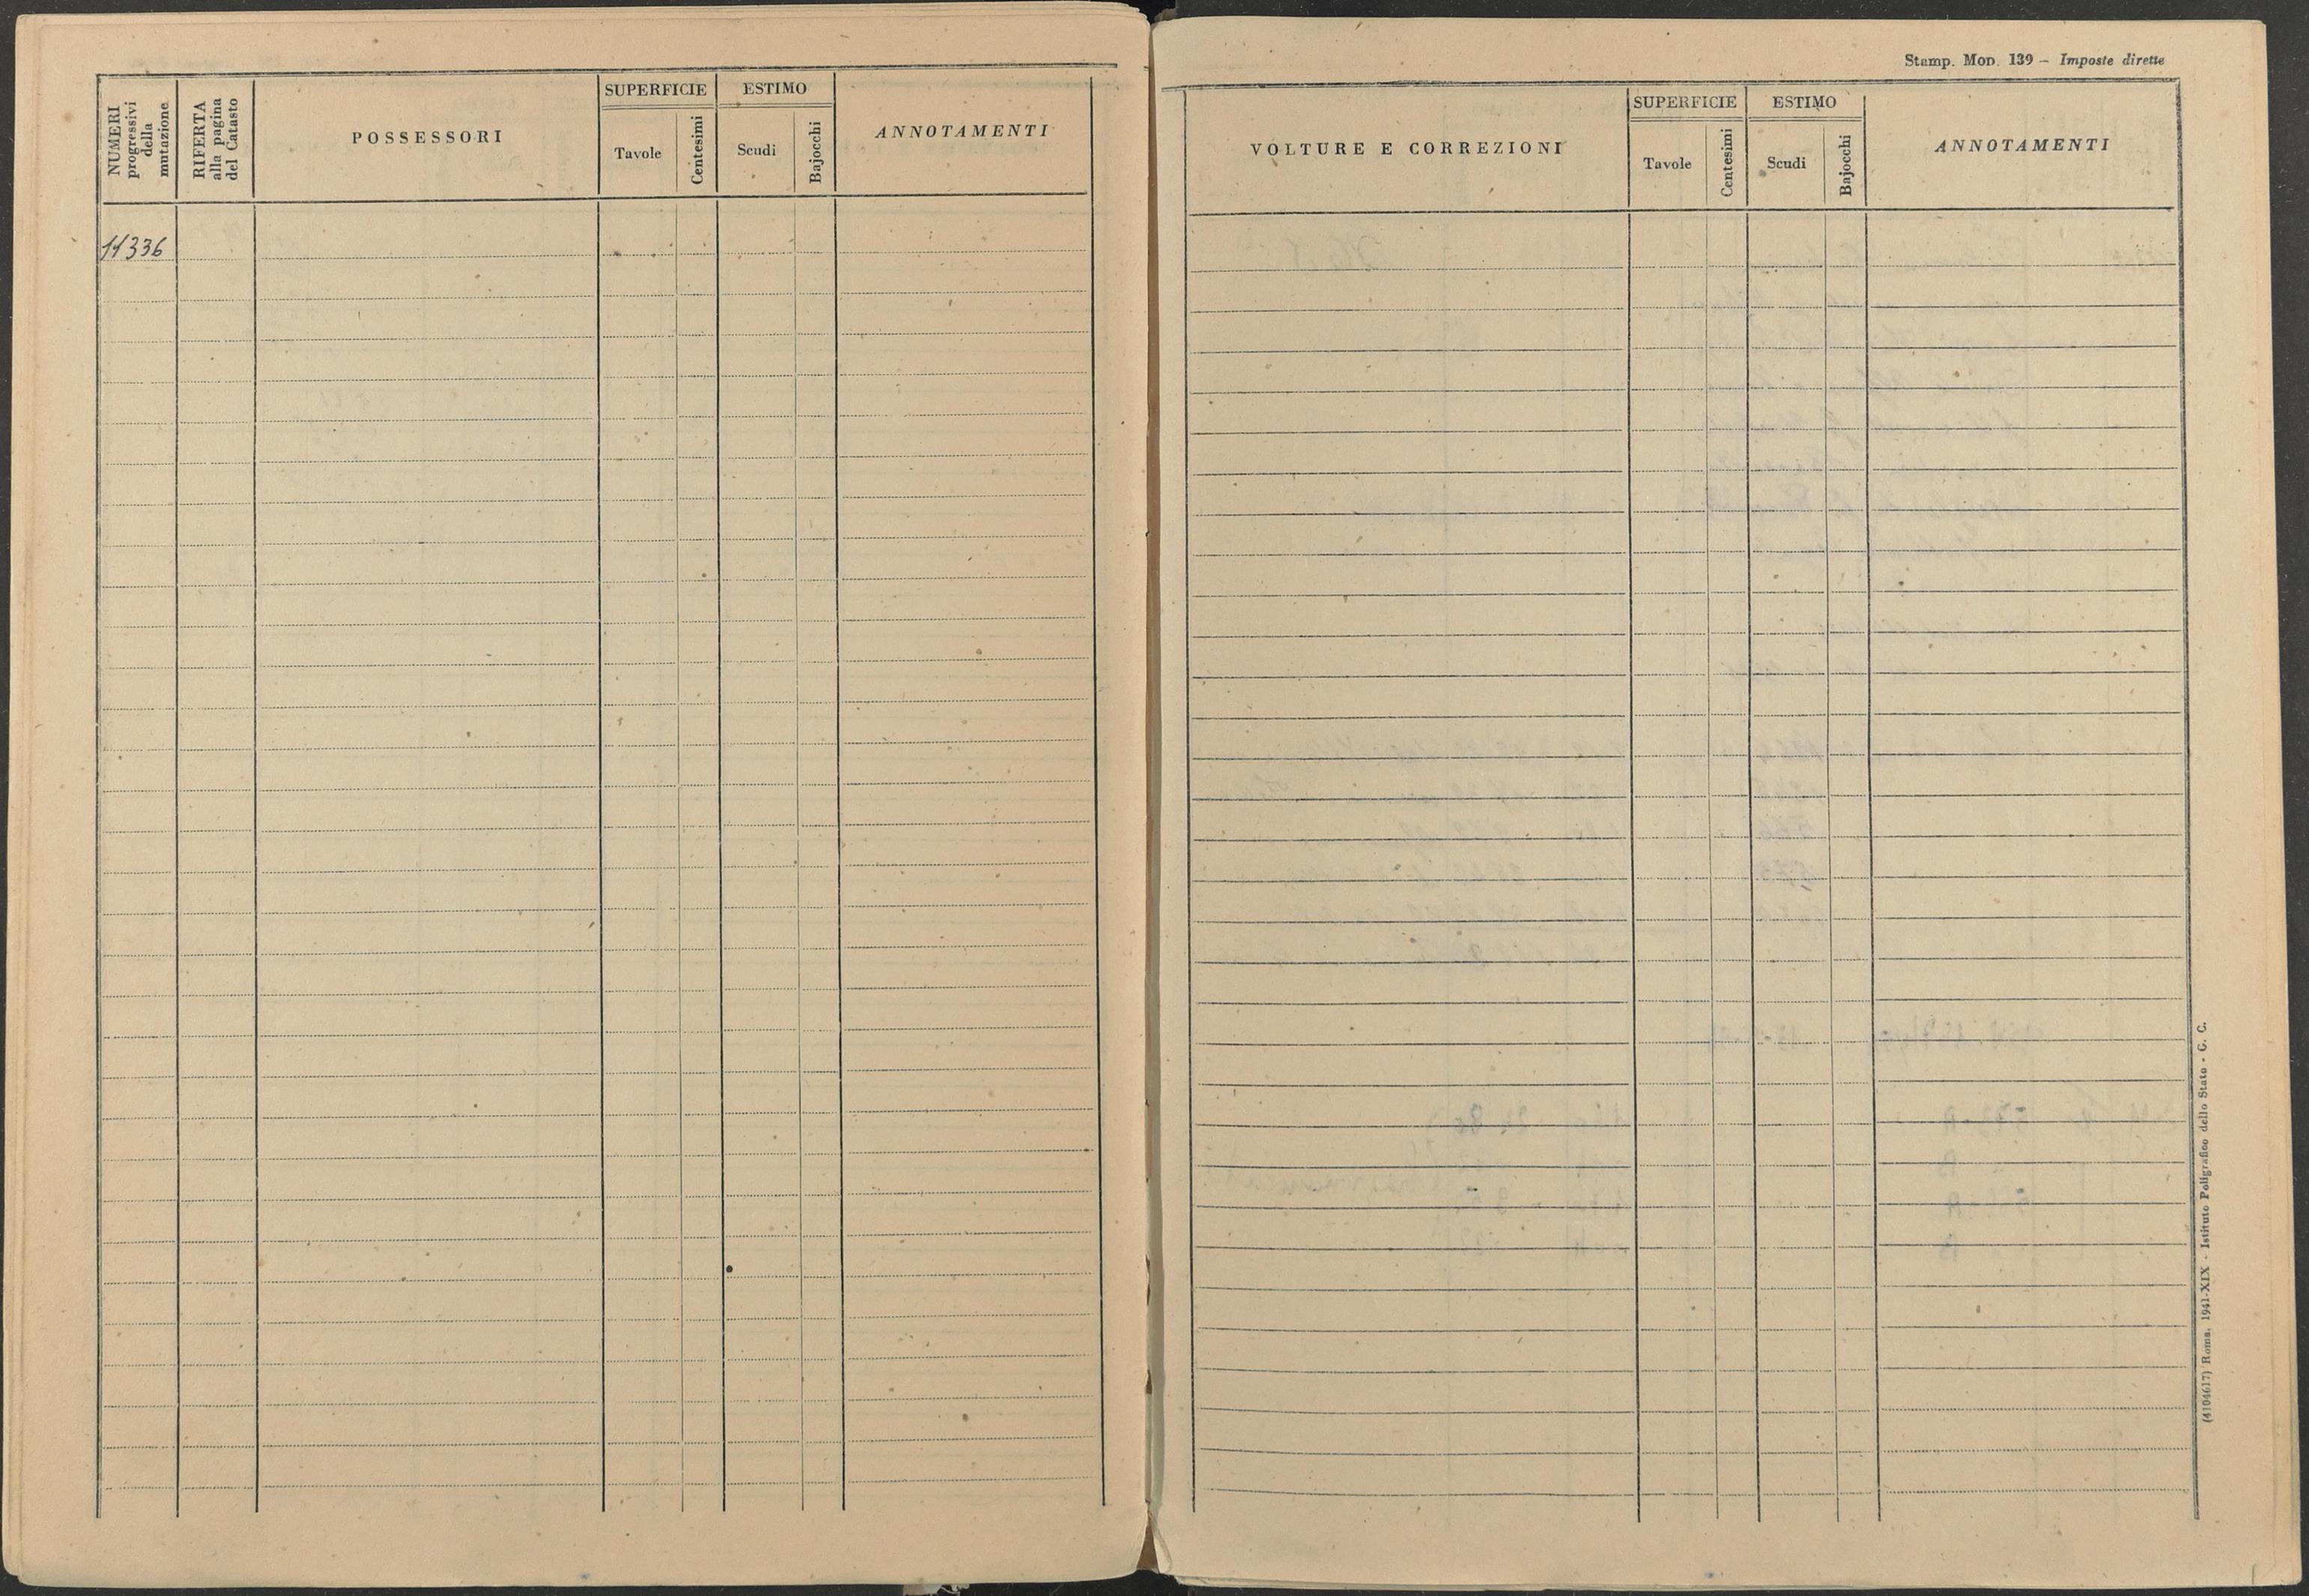 NUMERI
progressivi
della
mutazione
RIFERTA
alla pagina
del Catasto
POSSESSORI
SUPERFICIE
Tavole
Centesimi
ESTIMO
Scudi
Bajocchi
ANNOTAMENTI
11336
Stamp. Mod. 139 – Imposte dirette
VOLTURE E CORREZIONI
SUPERFICIE
Tavole
Centesimi
ESTIMO
Scudi
Bajocchi
ANNOTAMENTI
(4104617) Roma, 1941-XIX - Istituto Poligrafico dello Stato - G. C.